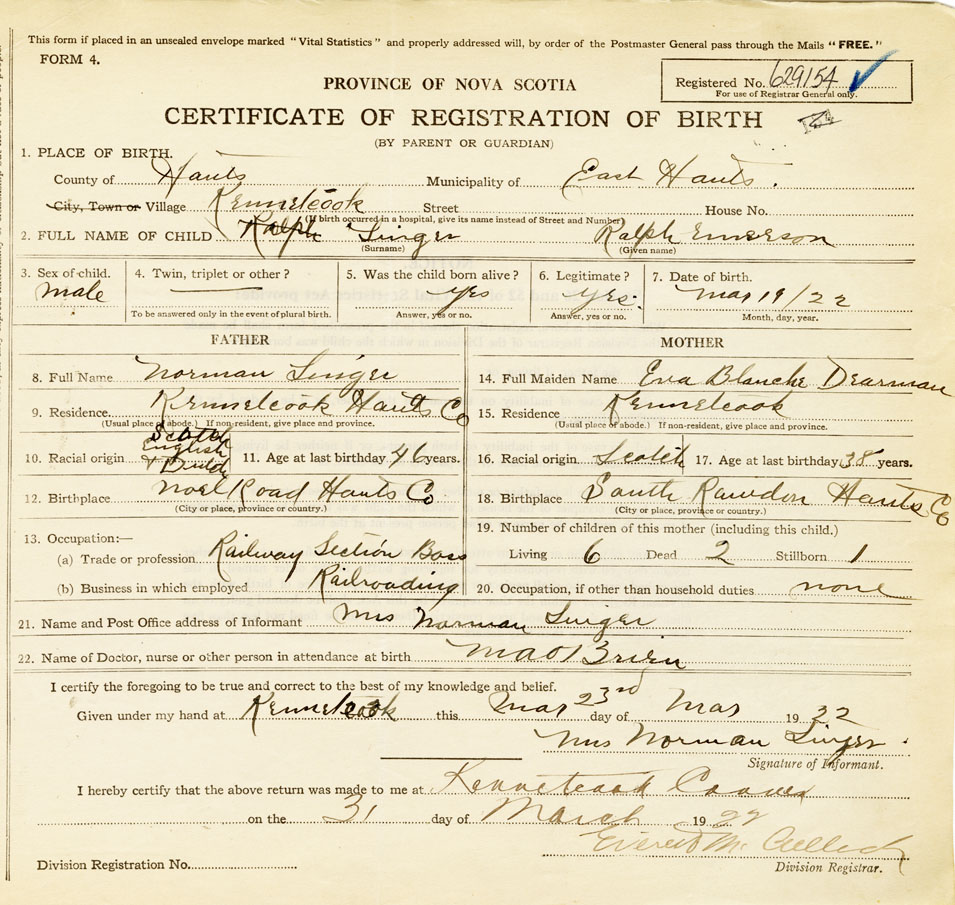 This form if placed in an unsealed envelope marked "Vital Statistics" and properly addressed will, by order of the Postmaster General pass through the Mails "FREE."
FORM 4.
Registered No. 629154
For use of Registrar General only.
PROVINCE OF NOVA SCOTIA
CERTIFICATE OF REGISTRATION OF BIRTH
(BY PARENT OR GUARDIAN)
1. PLACE OF BIRTH.
County of Hants Municipality of East Hants.
City, Town or Village Kennetcook Street House No.
(If birth occurred in a hospital, give its name instead of Street and Number)
2. FULL NAME OF CHILD Ralph Singer Ralph Emerson
(Surname) (Given name)
3. Sex of child. 4. Twin, triplet or other? 5. Was the child born alive? 6. Legitimate? 7. Date of birth.
male yes yes. Mar 19/22
To be answered only in the event of plural birth. Answer, yes or no. Answer, yes or no. Month, day, year.
FATHER MOTHER
8. Full Name Norman Singer 14. Full Maiden Name Eva Blanche Dearman
9. Residence Kennetcook Hants Co 15. Residence Kennetcook
(Usual place of abode.) If non-resident, give place and province. (Usual place of abode.) If non-resident, give place and province.
Scotch
English
10. Racial origin + Dutch 11. Age at last birthday 46 years. 16. Racial origin Scotch 17. Age at last birthday 38 years.
12. Birthplace Noel Road Hants Co 18. Birthplace South Rawdon Hants Co
(City or place, province or country.) (City or place, province or country.)
13. Occupation:— 19. Number of children of this mother (including this child.)
(a) Trade or profession Railway Section Boss Living 6 Dead 2 Stillborn 1
(b) Business in which employed Railroading 20. Occupation, if other than household duties none
21. Name and Post Office address of Informant Mrs Norman Singer
22. Name of Doctor, nurse or other person in attendance at birth
I certify the foregoing to be true and correct to the best of my knowledge and belief.
Given under my hand at Kennetcook this Mar 23rd day of Mar 19 22
Mrs Norman Singer.
Signature of Informant.
I hereby certify that the above return was made to me at Kennetcook Corner
on the 31 day of March 19 22
Everett
Division Registration No. Division Registrar.